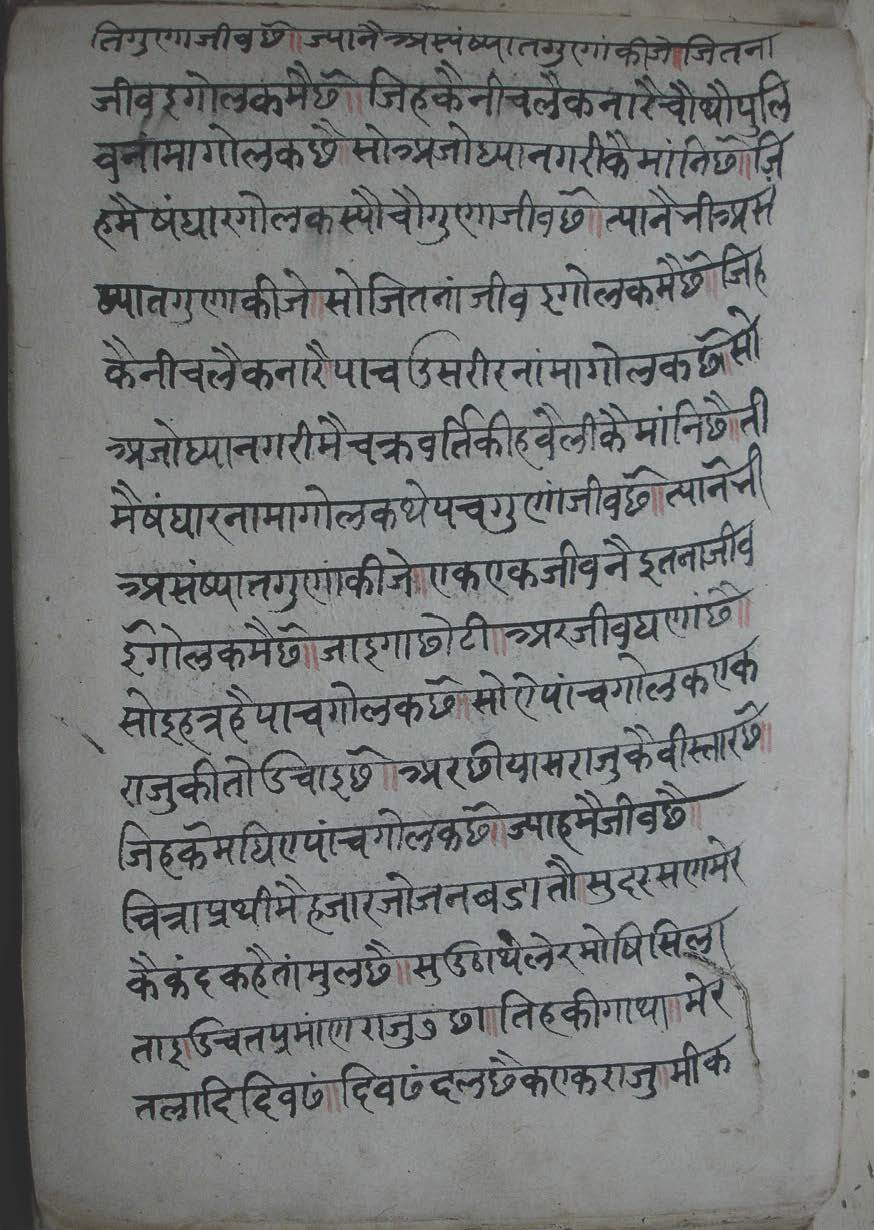 तिगुणाजीवछै॥ज्यानैअसंष्यातगुणांकीजे॥जितना
जीवइगोलकमैछै॥जिहकैनीचलैकनारैचौथौपुलि
वनामागोलकछैसोअजोध्यानगरीकैमांनिछै॥जि
हमैषंधारगोलकस्यौचौगुणाजीवछै॥त्यानैनीअसं
ष्यातगुणकीजे॥सोजितनांजीवइगोलकमैछै॥जिह
कैनीचलैकनारैपाचउसरीरनांमागोलकछै॥सो
अजोध्यानगरीमैचक्रवर्तिकीहवैलीकैमांनिछै॥ती
मैषंधारनामागोलकथेपचगुणांजीवछै॥त्यानेनी
असंष्यातगुणांकीजे॥एकएकजीवनैइतनाजीव
ईगोलकमैछै॥जाइगाछोटी॥अरजीवघणांछै॥
सोइहत्रहैपाचगोलकछै॥सोऐपांचगोलकएक
राजुकीतोउचाइछै॥अरछीयासराजुकैवीस्तारछै॥
जिहकैमधिएपांचगोलकछै॥ज्याहमैजीवछै॥
चित्राप्रथीमैहजारजोजनबडातौसुदरसणमेर
कैकंदकहैतांमुलछै॥सुउणथेलेरमोषिसिला
ताइउचितप्रमांणराजु७छा॥तिहकीगाथा॥मेर
तलादिदिवढं॥दिवढंदलछैकएकराजु॥मीक